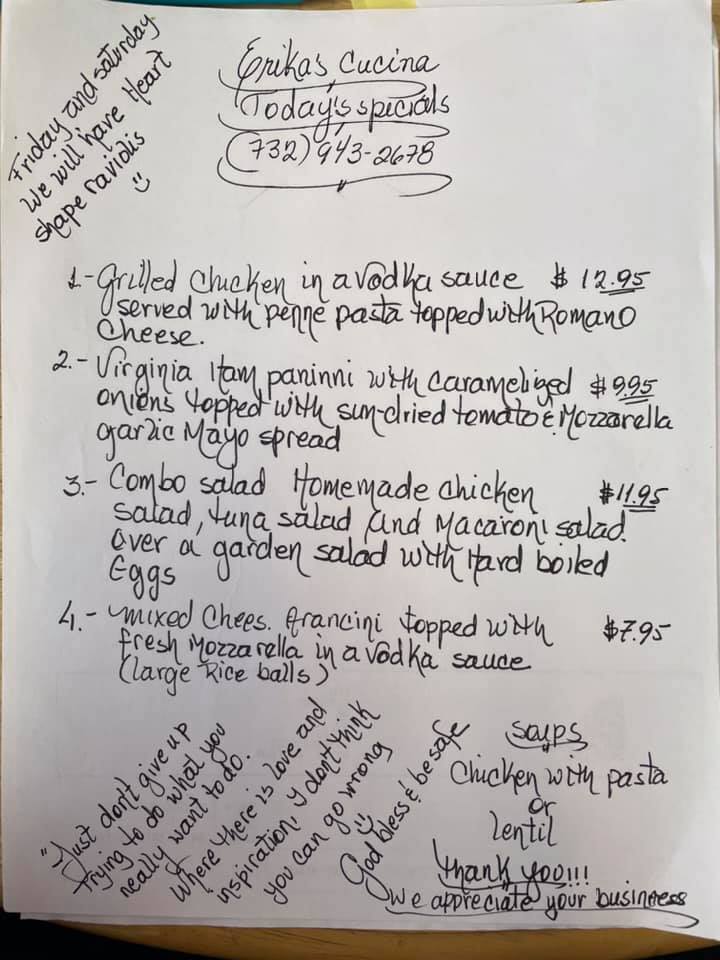 Friday and saturday
We will have Heart
shape raviolis
Erika's Cucina
Today's specials
(732) 943-2678
1.- Grilled Chicken in a vodka sauce $ 12.95
served with penne pasta topped with Romano
Cheese.
2.- Virginia Ham paninni with caramelized $9.95
onions topped with sun-dried tomato & Mozzarella
garlic Mayo spread
3.- Combo salad Homemade chicken $11.95
salad, tuna salad and Macaroni salad.
Over a garden salad with Hard boiled
Eggs
4.- Mixed Chees. Arancini topped with $7.95
fresh Mozzarella in a vodka sauce
(large Rice balls)
"Just don't give up
trying to do what you
really want to do.
Where there is love and
inspiration, I don't think
you can go wrong
God bless & be safe
soups
Chicken with pasta
or
lentil
thank you!!!
we appreciate your businness